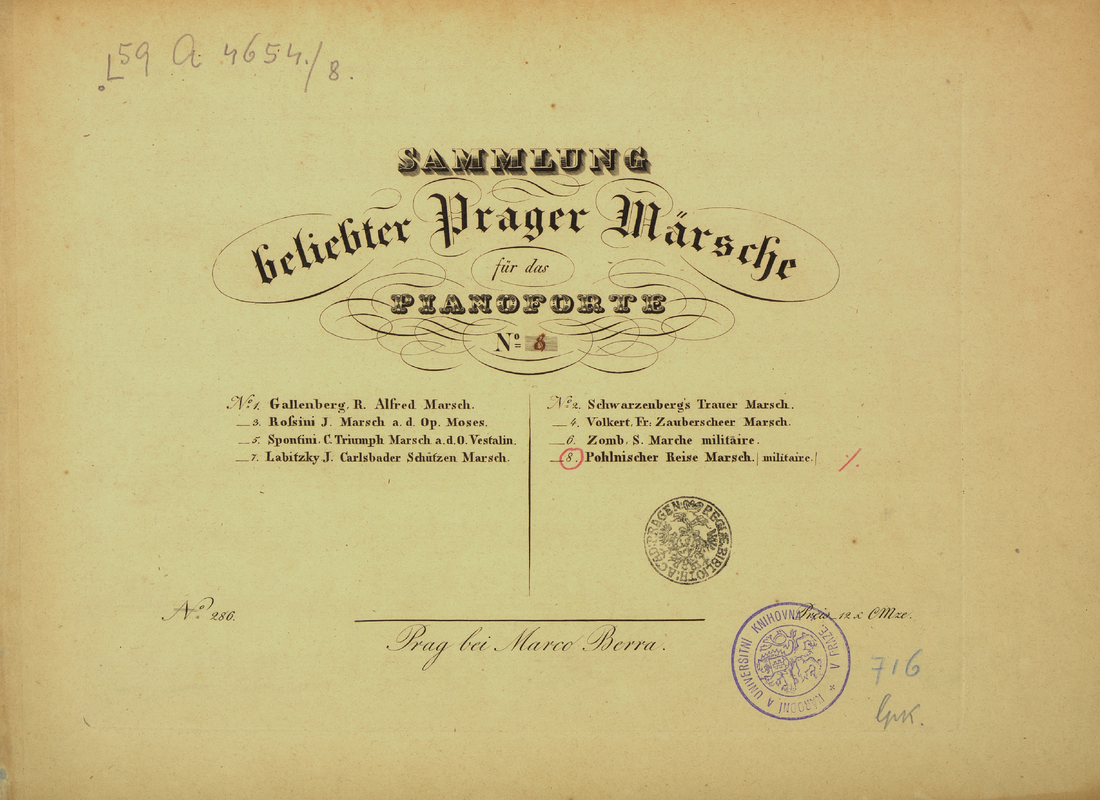 59 A 4654./8.
SAMMLUNG
beliebter Prager Märsche
für das
PIANOFORTE
No 8
No 1. Gallenberg, R. Alfred Marsch.
3. Roſsini J. Marsch a. d. Op. Moses.
5. Spontini. C. Triumph Marsch a.d.O. Vestalin.
7. Labitzky J. Carlsbader Schützen Marsch.
No 2. Schwarzenberg's Trauer Marsch.
4. Volkert, Fr: Zauberscheer Marsch.
6. Zomb. S. Marche militaire.
8. Pohlnischer Reise Marsch. (militaire.)
CÆS. REG. BIBLIOTH: ACAD: PRAGEN:
No 286.
Preis 12 x CMze.
Prag bei Marco Berra.
NÁRODNÍ A UNIVERSITNÍ KNIHOVNA V PRAZE
716